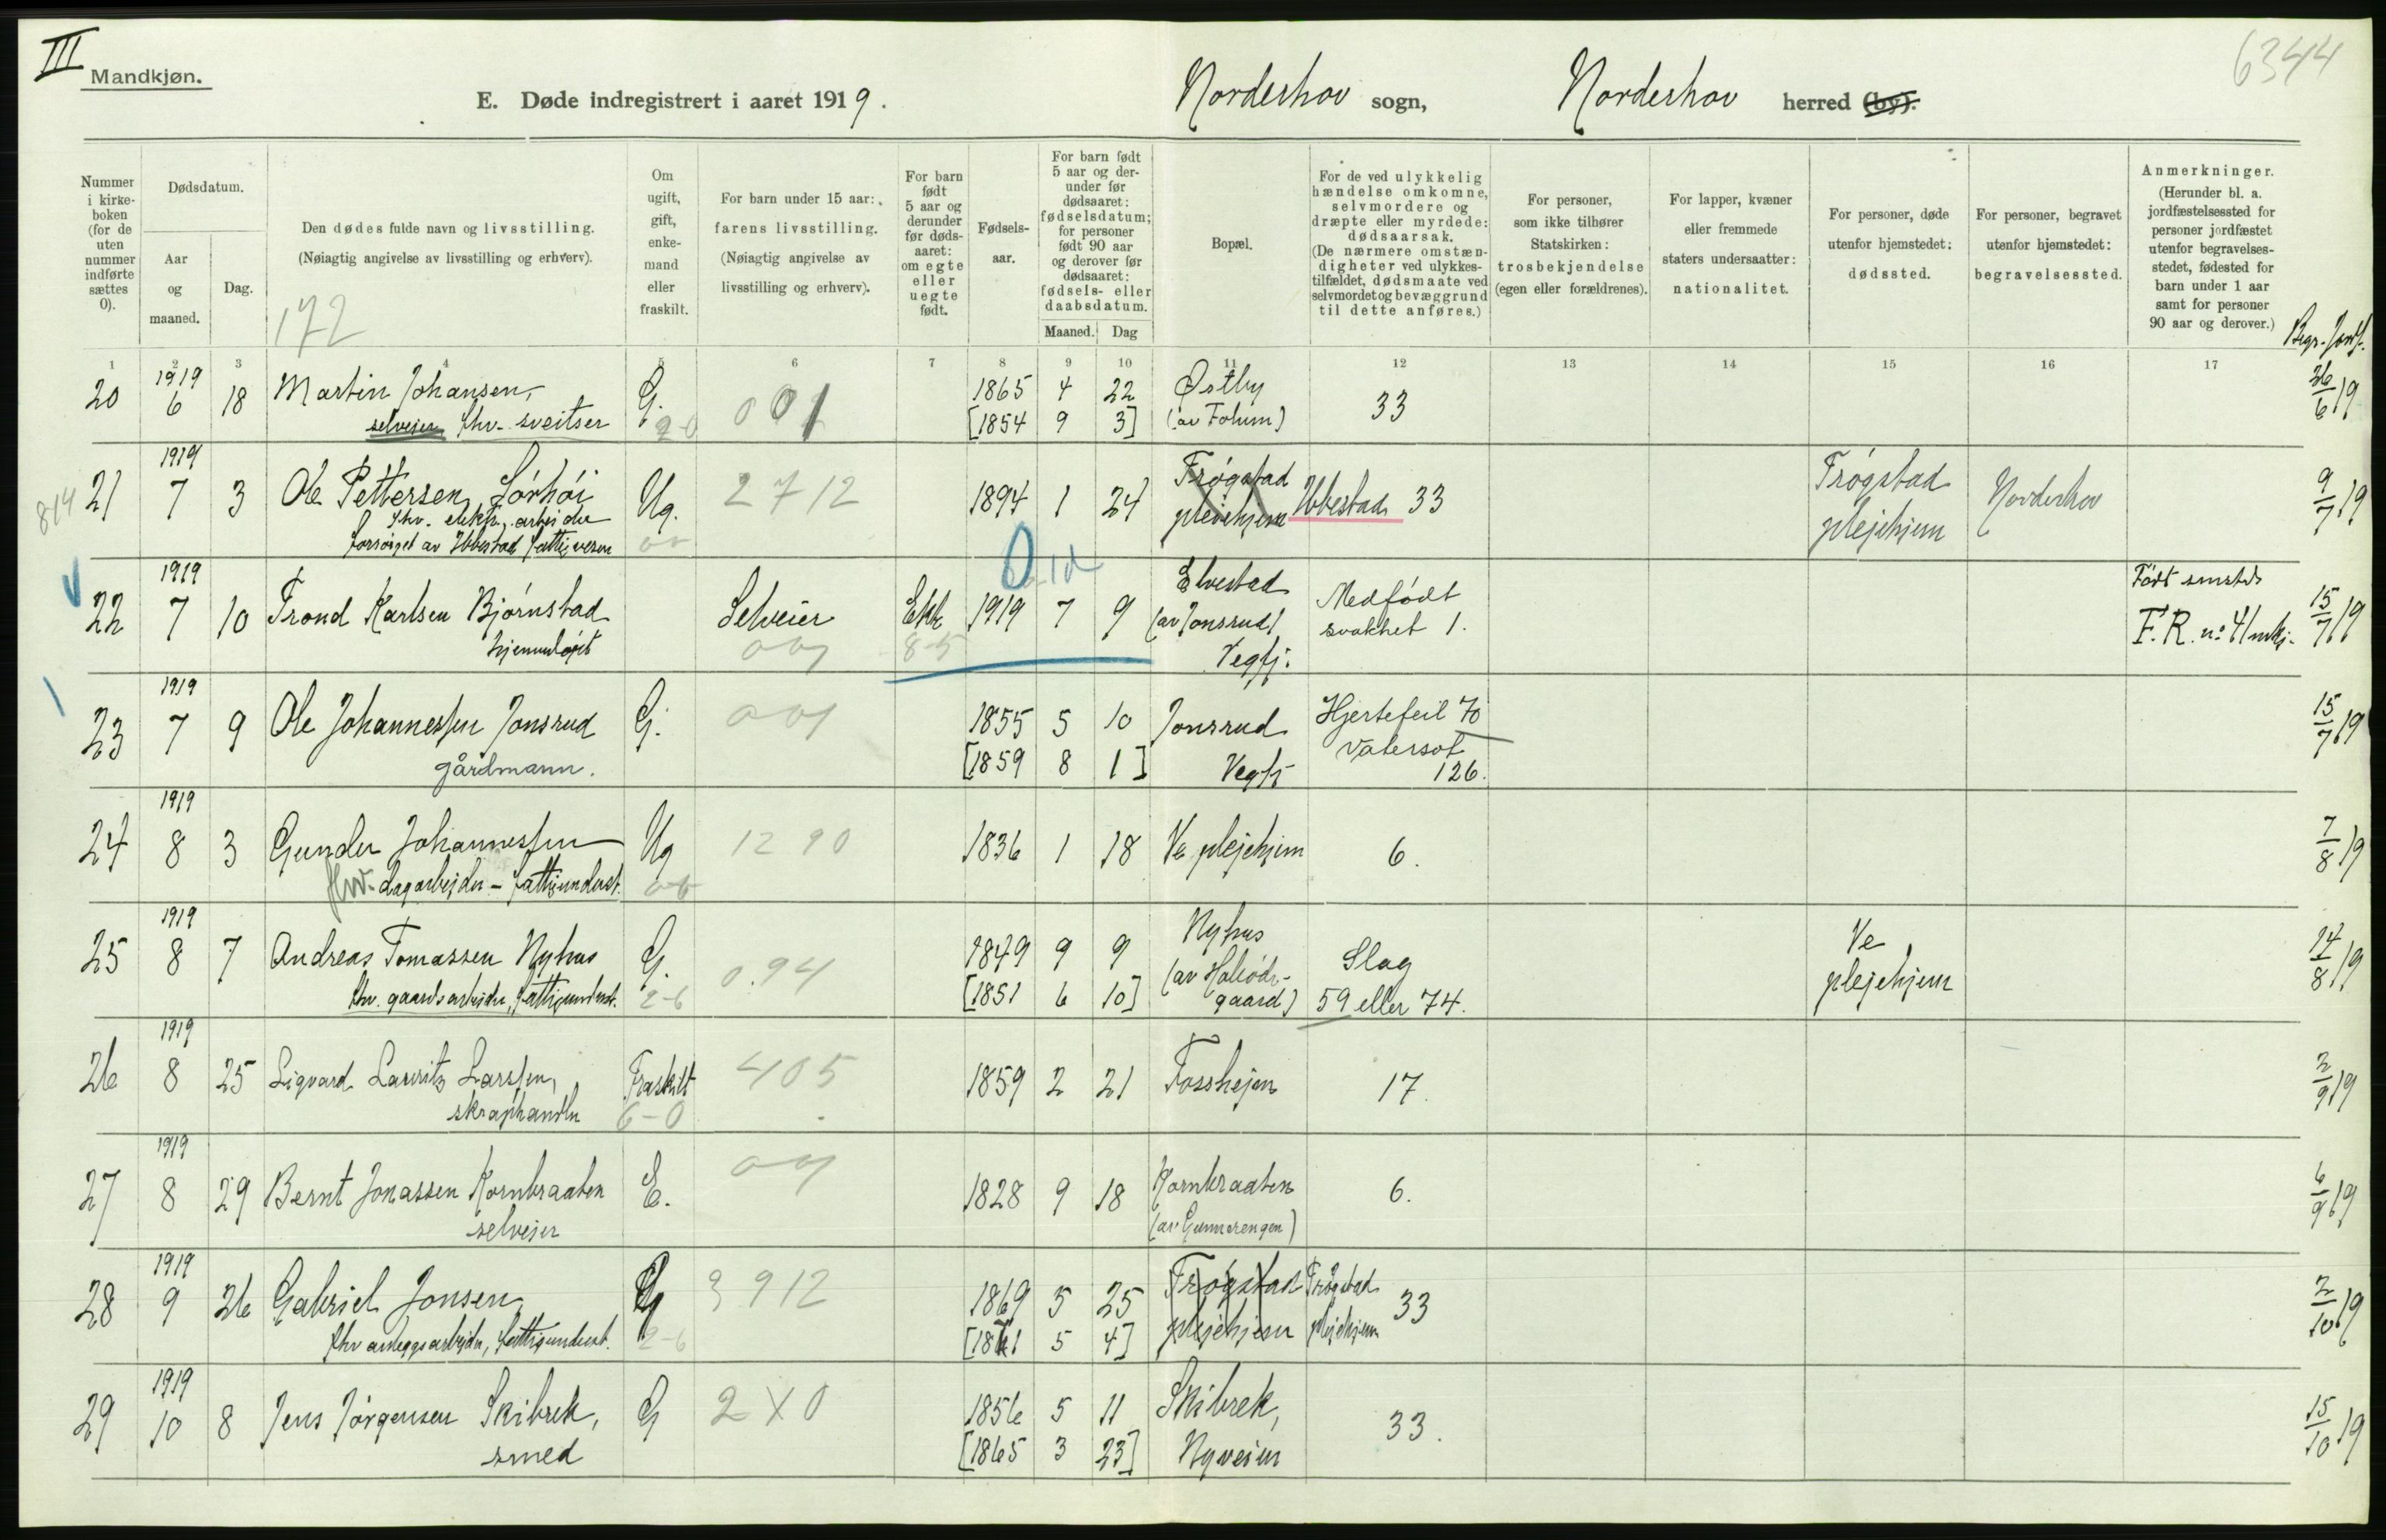 III
Mandkjøn.
6344
E. Døde indregistrert i aaret 1919.
Norderhov sogn,
Norderhov herred (by).
Nummer i kirkeboken (for de uten nummer indførte sættes 0).
Dødsdatum.
Aar og maaned.
Dag.
Den dødes fulde navn og livsstilling.
(Nøiagtig angivelse av livsstilling og erhverv).
172
Om ugift, gift, enkemand eller fraskilt.
For barn under 15 aar: farens livsstilling. (Nøiagtig angivelse av livsstilling og erhverv).
For barn født 5 aar og derunder før dødsaaret: om egte eller uegte født.
Fødselsaar.
For barn født 5 aar og derunder før dødsaaret: fødselsdatum; for personer født 90 aar og derover før dødsaaret: fødsels- eller daabsdatum.
Maaned. Dag
Bopæl.
For de ved ulykkelig hændelse omkomne, selvmordere og dræpte eller myrdede: dødsaarsak. (De nærmere omstændigheter ved ulykkestilfældet, dødsmaate ved selvmordet og bevæggrund til dette anføres.)
For personer, som ikke tilhører Statskirken: trosbekjendelse (egen eller forældrenes).
For lapper, kvæner eller fremmede staters undersaatter: nationalitet.
For personer, døde utenfor hjemstedet: dødssted.
For personer, begravet utenfor hjemstedet: begravelsessted.
Anmerkninger. (Herunder bl. a. jordfæstelsessted for personer jordfæstet utenfor begravelsesstedet, fødested for barn under 1 aar samt for personer 90 aar og derover.)
Begr. Jordf.
1 2 3 4 5 6 7 8 9 10 11 12 13 14 15 16 17
20 1919 6 18 Martin Johansen, G. 001 1865 4 22 Østby 33 26/6 19
selveier fhv. sveitser 2-0 [1854 9 3] (av Tolum)
814 21 1919 7 3 Ole Pettersen Sørhøi Ug. 2712 1894 1 24 Frøgstad plejehjem Ibbestad 33 Frøgstad plejehjem Norderhov 9/7 19
fhv. elektr. arbeider
forsørget av Ibbestad fattigvesen
22 1919 7 10 Trond Karlsen Bjørnstad Selveier Ekte 1919 7 9 Elvestad Medfødt svakhet 1. Født smstds 15/7 19
hjemmedøpt 009 8-5 (av Jonsrud) Vegfj. F.R. no 41 mkj.
23 1919 7 9 Ole Johannessen Jonsrud G. 009 1855 5 10 Jonsrud Hjertefeil 70 15/7 19
gårdmann. [1859 8 1] Vegfj Vatersot 126.
24 1919 8 3 Gunder Johannessen Ug 1290 1836 1 18 Ve plejehjem 6. 7/8 19
fhv. dagarbejder - fattigunderst.
25 1919 8 7 Andreas Tomassen Nyhus G. 0.94 1849 9 9 Nyhus Slag Ve plejehjem 14/8 19
fhv. gaardsarbeider, fattigunderst. 2-6 [1851 6 10] gaard) 59 eller 74.
26 1919 8 25 Sigvard Lauritz Larssen, Fraskilt 405 1859 2 21 Fosshejm 17. 2/9 19
skraphandler 6-0
27 1919 8 29 Bernt Jonassen Kornbraaten E. 009 1828 9 18 Kornbraaten 6. 6/9 19
selveier (av Gunnerengen)
28 1919 9 26 Gabriel Jonsen G 3912 1869 5 25 Frøgstad plejehjem Frøgstad plejehjem 33 2/10 19
fhv anleggsarbejder, fattigunderst. 2-6 [1861 5 4]
29 1919 10 8 Jens Jørgensen Skibrek, G 2X0 1856 5 11 Skibrek, 33. 15/10 19
smed [1865 3 23] Nyveien